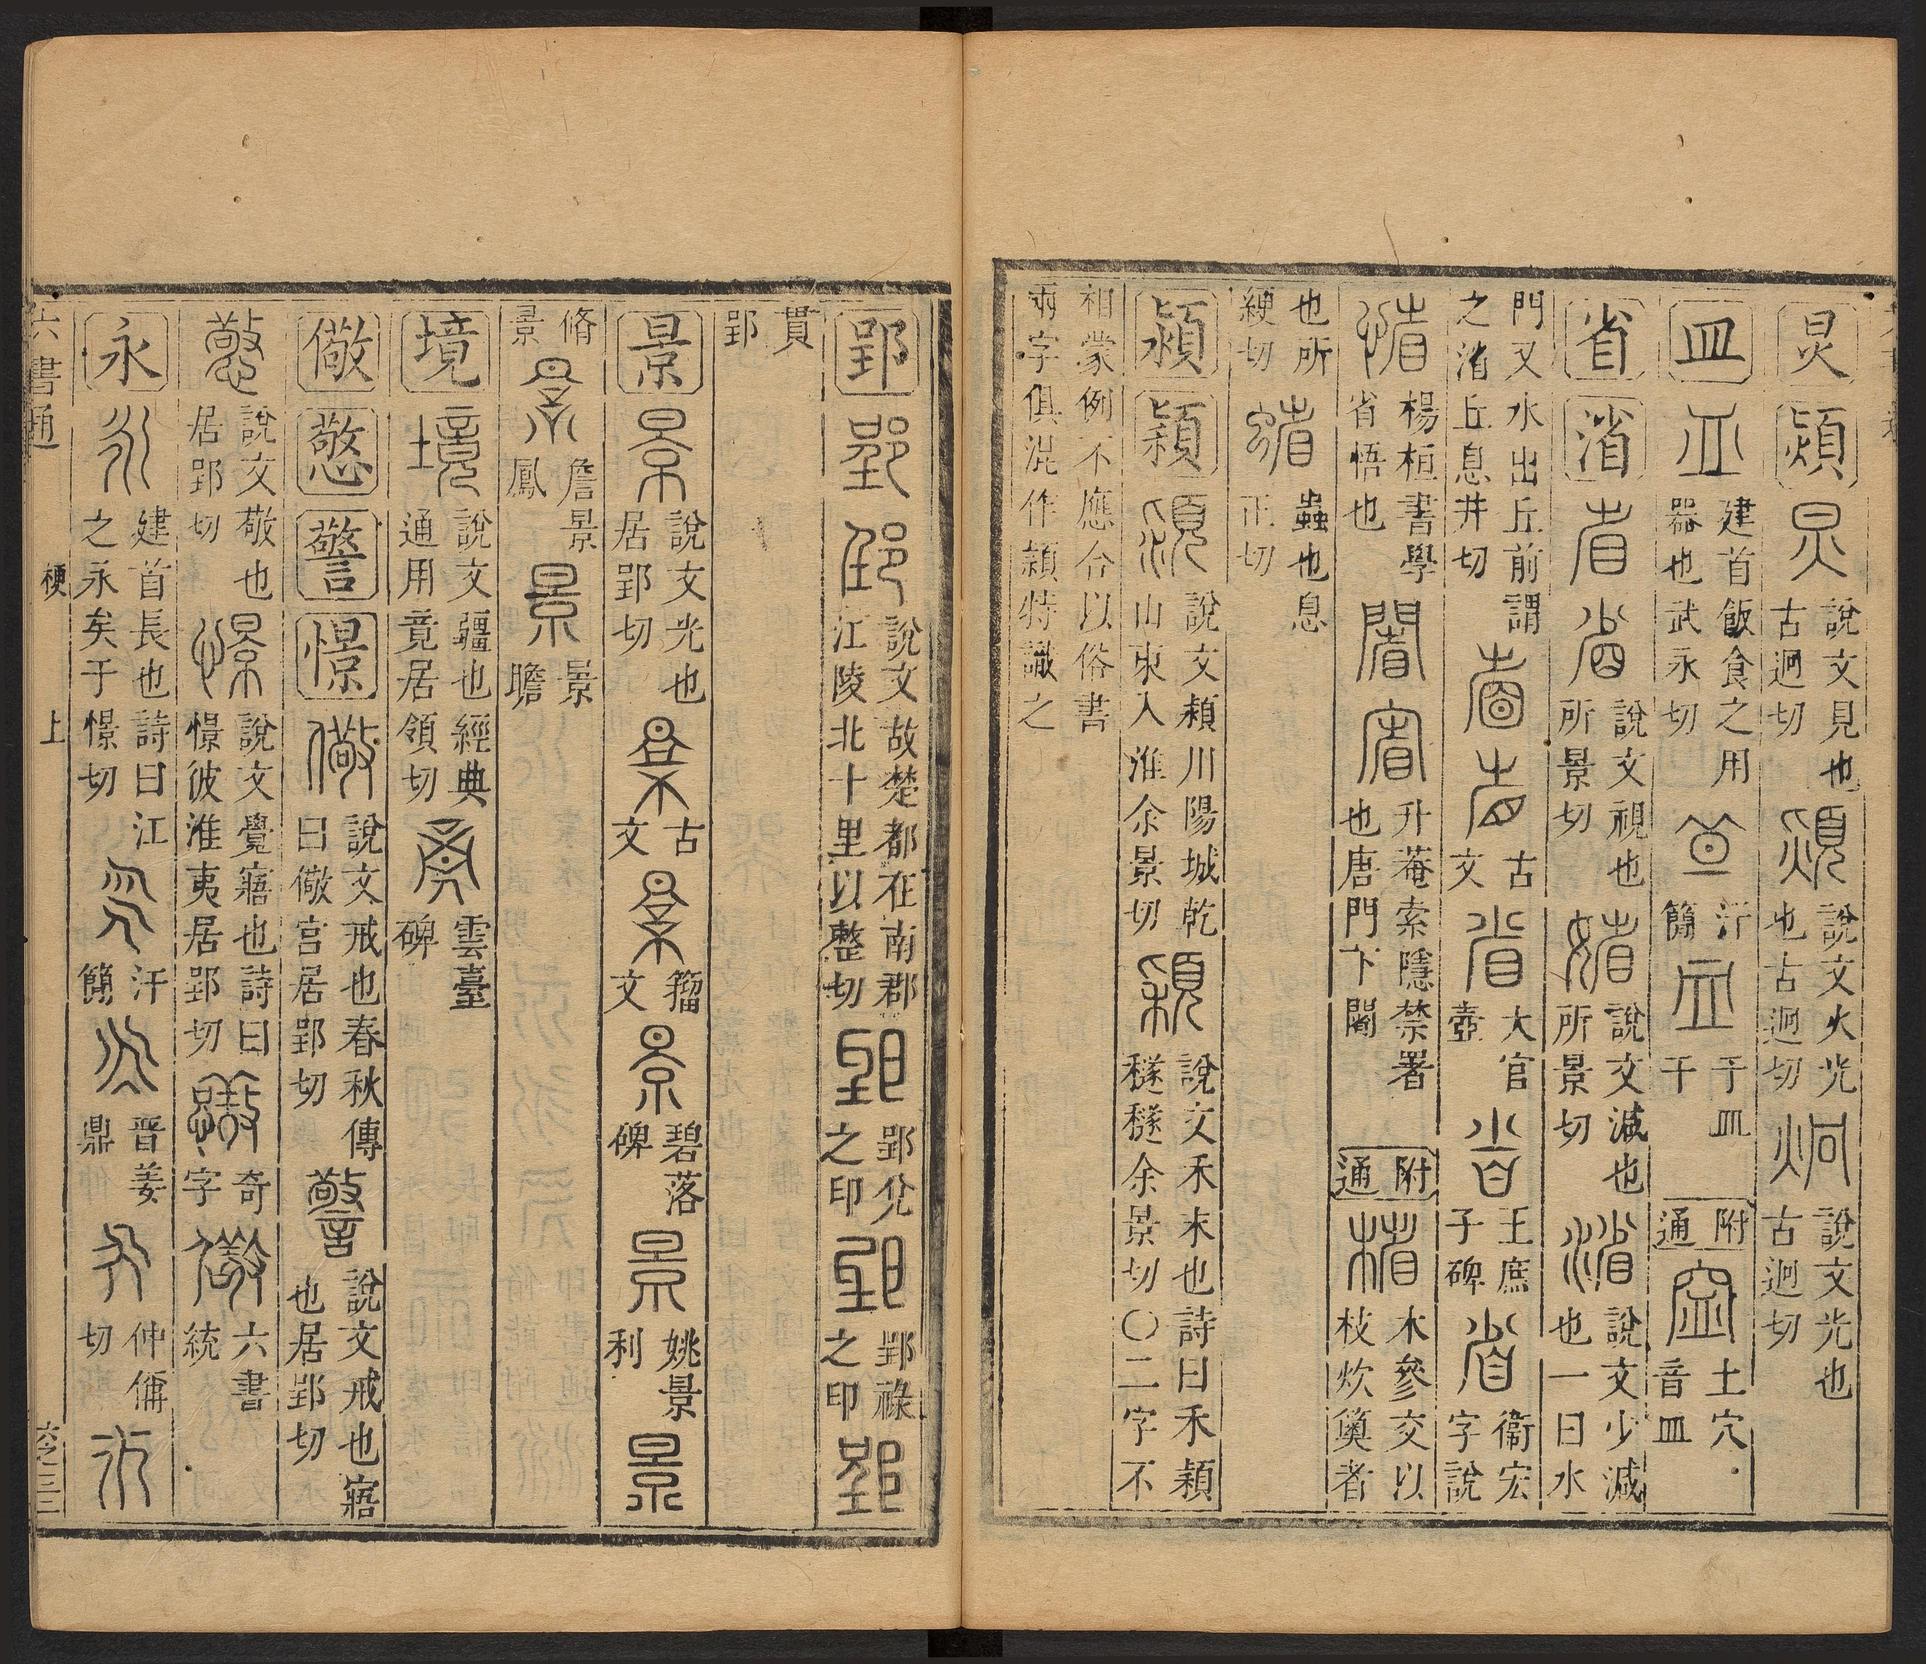 炅 熲 說文見也古迥切 說文火光也古迥切 說文光也古迥切
皿 建首飯食之用器也武永切 汗簡 于皿干 附通 土穴音皿
省 渻 說文視也所景切 說文減也所景切 說文少減也一曰水
門又水出丘前謂之渻丘息井切 古文 大官壺 王庶子碑 衞宏字說
楊桓書學省悟也 升菴索隱禁署也唐門下閣 附通 木參交以枝炊䉛者
也所綆切 蟲也息正切
潁 穎 說文潁川陽城乾山東入淮余景切 說文禾末也詩曰禾穎穟穟余景切〇二字不
相蒙例不應合以俗書
兩字俱混作頴特識之
郢 說文故楚都在南郡江陵北十里以整切 郢兊之印 郢祿之印
貫郢
景 說文光也居郢切 古文 籀文 碧落碑 姚景利
脩景 詹景鳳 景瞻
境 說文疆也經典通用竟居領切 雲臺碑
儆 憼 警 憬 說文戒也春秋傳曰儆宮居郢切 說文戒也寤也居郢切
說文敬也居郢切 說文覺寤也詩曰憬彼淮夷居郢切 奇字 六書統
永 建首長也詩曰江之永矣于憬切 汗簡 晋姜鼎 仲偁切
六書通 梗 上